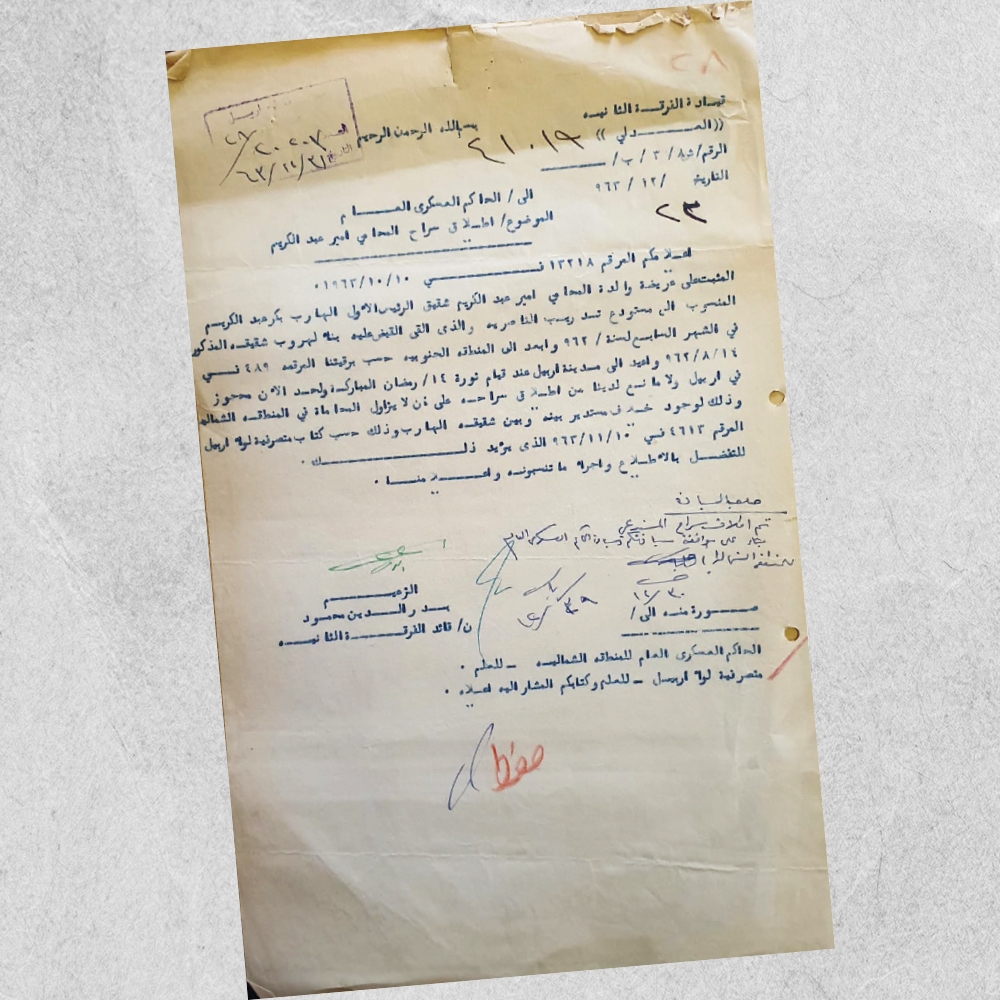 ٢٨
قيادة الفرقة الثانية
بسم الله الرحمن الرحيم
((العدلي))
الرقم/ش٨/ ٢ /ب/ ٤١٠١٩
التاريخ / ١٢/ ٩٦٣
٢٣
اربيل
العدد ٢٠٢٠٧
التاريخ ٦٣/١٢/٣١
الى/ الحاكم العسكري العام
الموضوع/ اطلاق سراح المحامي امير عبد الكريم
اعلامكم المرقم ١٣٢١٨ في ١٩٦٣/١٠/١٠
المثبت على عريضة والدة المحامي امير عبد الكريم شقيق الرئيس الاول الهارب بكر عبد الكريم
المنسوب الى مستودع تدريب الناصرية والذي القي القبض عليه بناء لهروب شقيقه المذكور
في الشهر السابع لسنة/ ٩٦٢ وابعد الى المنطقه الجنوبيه حسب برقيتنا المرقمه ٤٨٩ في
٩٦٢/٨/١٤ واعيد الى مدينة اربيل عند قيام ثورة ١٤/ رمضان المباركة ولحد الان محجوز
في اربيل ولا مانع لدينا من اطلاق سراحه على ان لا يزاول المحاماة في المنطقه الشماليه
وذلك لوجود خلاف مستمر بينه وبين شقيقه الهارب وذلك حسب كتاب متصرفية لواء اربيل
المرقم ٤٦١٣ في ٩٦٣/١١/١٠ الذي يؤيد ذلك .
للتفضل بالاطلاع واجراء ما تنسبونه واعلامنا .
تم اطلاق سراح
بناء على موافقة
١٢/٣٠
الزعيم
بدر الدين محمود
ن/ قائد الفرقة الثانية
صورة منه الى/
الحاكم العسكري العام للمنطقه الشماليه - للعلم .
متصرفية لواء اربيل - للعلم وكتابكم المشار اليه اعلاه .
حفظ